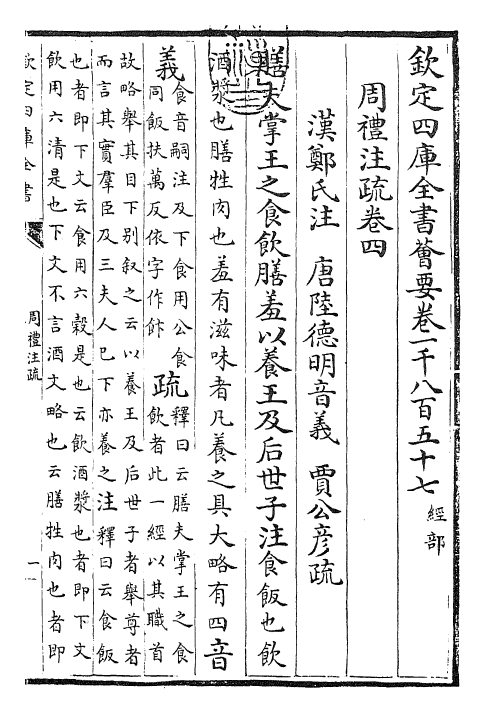 欽定四庫全書薈要卷一千八百五十七 經部
周禮注疏卷四
漢鄭氏注 唐陸德明音義 賈公彦疏
膳夫掌王之食飲膳羞以養王及后世子注食飯也飲
酒漿也膳牲肉也羞有滋味者凡養之具大略有四音
義食音嗣注及下食用公食
同飯扶萬反依字作飰疏釋曰云膳夫掌王之食
飲者此一經以其職首
故略舉其目下别叙之云以養王及后世子者舉尊者
而言其實羣臣及三夫人已下亦養之注釋曰云食飯
也者即下文云食用六榖是也云飲酒漿也者即下文
飲用六清是也下文不言酒文略也云膳牲肉也者即
欽定四庫全書
周禮注疏
一